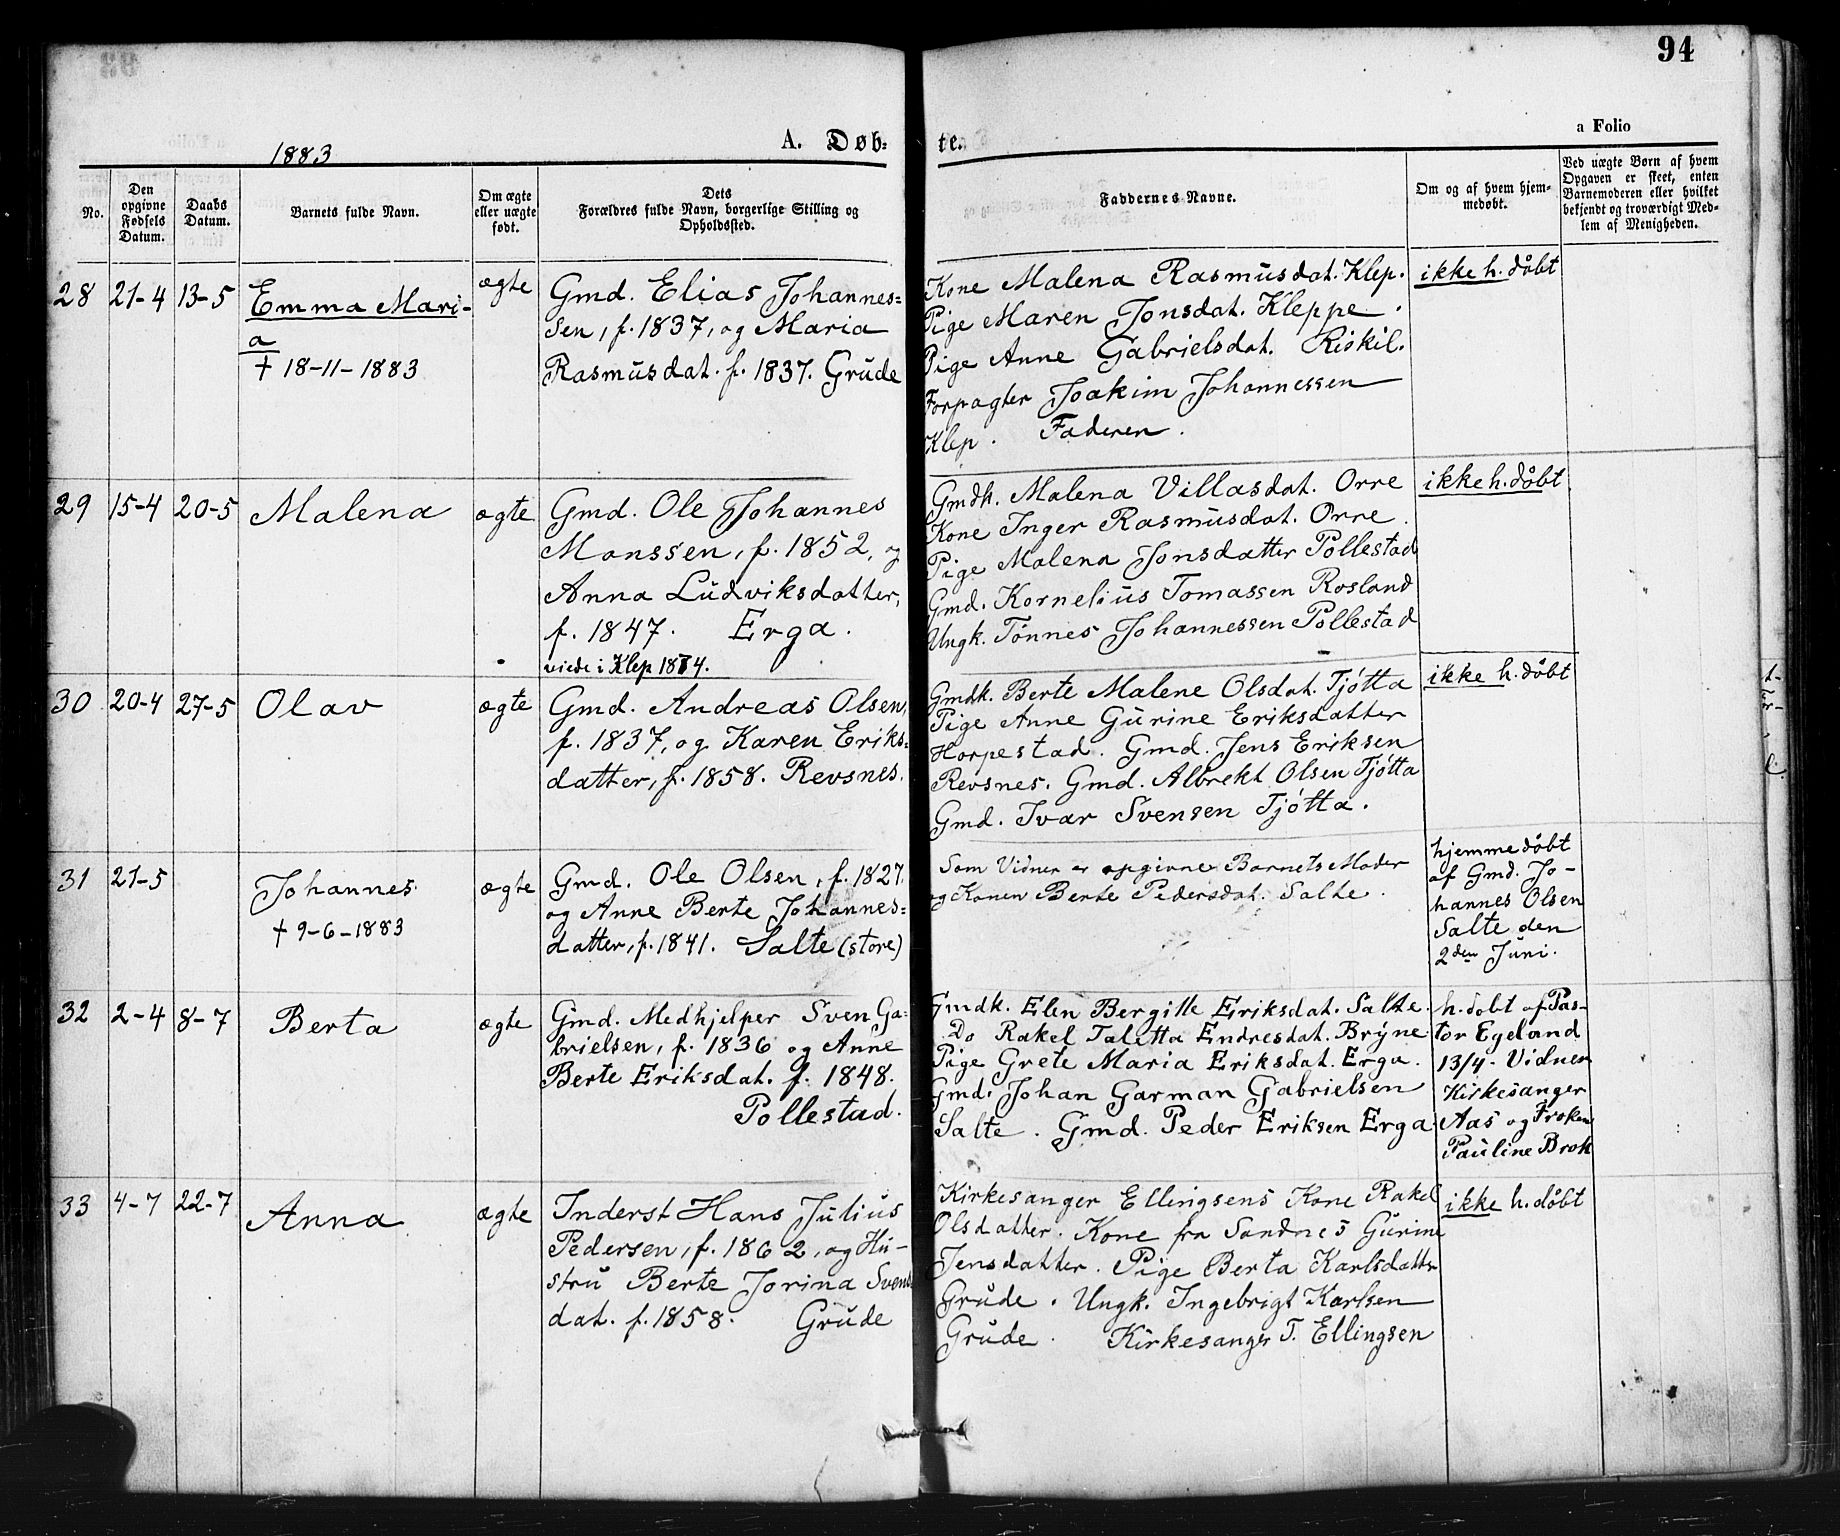 94
1883
A. Døb-
te.
a Folio
No.
Den
opgivne
Fødsels
Datum.
Daabs
Datum.
Barnets fulde Navn.
Om ægte
eller uægte
født.
Dets
Forældres fulde Navn, borgerlige Stilling og
Opholdssted.
Faddernes Navne.
Om og af hvem hjem-
medøbt.
Ved uægte Børn af hvem
Opgaven er skeet, enten
Barnemoderen eller hvilket
bekjendt og troværdigt Med-
lem af Menigheden.
28 21-4 13-5
Emma Mari-
a
† 18-11-1883
ægte
Gmd. Elias Johannes=
sen, f. 1837, og Maria
Rasmusdat. f. 1837. Grude
Kone Malena Rasmusdat. Klep.
Pige Maren Jonsdat. Kleppe.
Pige Anne Gabrielsdat. Riskil.
Forpagter Joakim Johannessen
Klep. Faderen.
ikke h. døbt
29 15-4 20-5
Malena
ægte
Gmd. Ole Johannes
Monssen, f. 1852, og
Anna Ludviksdatter,
f. 1847. Erga.
viede i Klep 1874.
Gmdk. Malena Villasdat. Orre
Kone Inger Rasmusdat. Orre.
Pige Malena Jonsdatter Pollestad
Gmd. Kornelius Tomassen Rosland
Ungk. Tönnes Johannessen Pollestad
ikke h. døbt
30 20-4 27-5
Olav
ægte
Gmd. Andreas Olsen,
f. 1837, og Karen Eriks=
datter, f. 1858. Revsnes.
Gmdk. Berte Malene Olsdat. Tjótta
Pige Anne Gurine Eriksdatter
Horpestad. Gmd. Jens Eriksen
Revsnes. Gmd. Albrekt Olsen Tjótta
Gmd. Ivar Svensen Tjótta.
ikke h. døbt
31 21-5
Johannes.
† 9-6-1883
ægte
Gmd. Ole Olsen, f. 1827.
og Anne Berte Johannes=
datter, f. 1841. Salte (store)
Som Vidner er opgivne Barnets Moder
og Konen Berte Pedersdat. Salte.
hjemmedøbt
af Gmd. Jo-
hannes Olsen
Salte den
2den Juni.
32 2-4 8-7
Berta
ægte
Gmd. Medhjelper Sven Ga=
brielsen, f. 1836 og Anne
Berte Eriksdat. f. 1848.
Pollestad.
Gmdk. Elen Bergitte Eriksdat. Salte.
Do Rakel Taletta Endresdat. Bryne.
Pige Grete Maria Eriksdat. Erga.
Gmd. Johan Garman Gabrielsen
Salte. Gmd. Peder Eriksen Erga
h. dobt af Pas-
tor Egeland
13/4. Vidner
Kirkesanger
Aas og Frøken
Pauline Brok
33 4-7 22-7
Anna
ægte
Inderst Hans Julius
Pedersen, f. 1862, og Hu-
stru Berte Jorina Svens
dat. f. 1858. Grude
Kirkesanger Ellingsens Kone Rakel
Olsdatter. Kone fra Sandnes Gurine
Jensdatter. Pige Berta Karlsdatter
Grude. Ungk. Ingebrigt Karlsen
Grude. Kirkesanger T. Ellingsen
ikke h. døbt